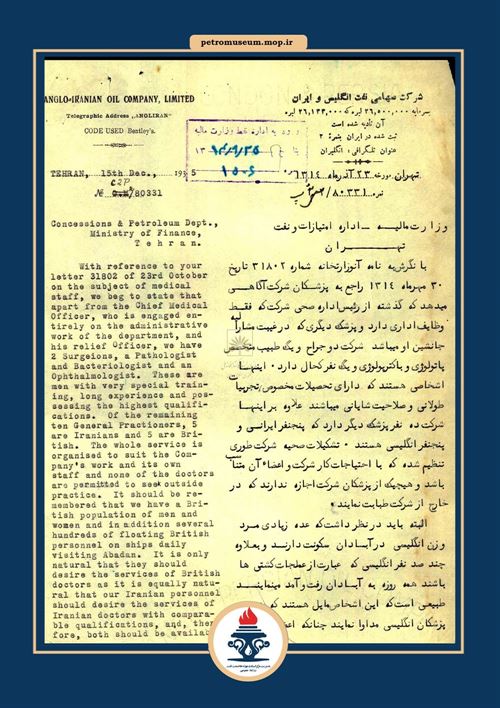 petromuseum.mop.ir
ANGLO-IRANIAN OIL COMPANY, LIMITED
Telegraphic Address „ANGLIRAN"
CODE USED Bentley's.
TEHRAN, 15th Dec., 1935
№ /80331
Concessions & Petroleum Dept.,
Ministry of Finance,
Tehran.
With reference to your
letter 31802 of 23rd October
on the subject of medical
staff, we beg to state that
apart from the Chief Medical
Officer, who is engaged en-
tirely on the administrative
work of the department, and
his relief Officer, we have
2 Surgeions, a Pathologist
and Bacteriologist and an
Ophthalmologist. These are
men with very special train-
ing, long experience and pos-
sessing the highest qualifi-
cations. Of the remaining
ten General Practioners, 5
are Iranians and 5 are Bri-
tish. The whole service is
organised to suit the Com-
pany's work and its own
staff and none of the doctors
are permitted to seek outside
practice. It should be re-
membered that we have a Bri-
tish population of men and
women and in addition several
hundreds of floating British
personnel on ships daily
visiting Abadan. It is only
natural that they should
desire the services of British
doctors as it is equally natu-
ral that our Iranian personnel
should desire the services of
Iranian doctors with compara-
ble qualifications, and, ther
fore, both should be availab
شرکت سهامی نفت انگلیس و ایران
سرمایه ۲۶,۵۰۰,۰۰۰ لیره که ۲۶,۱۳۳,۰۰۰ لیره
آن تادیه شده است
ثبت شده در ایران بنمره ۲
عنوان تلگرافی: انگلیران
ورود به اداره خط وزارت مالیه
۱۵۰۶
تهران مورخه ۲۳ آذرماه ۱۳۱۴
نمره ۸۰۳۳۱/
وزارت مالیه ــ اداره امتیازات و نفت
تهران
با نگرش به نامه آنوزارتخانه شماره ۳۱۸۰۲ تاریخ
۳۰ مهرماه ۱۳۱۴ راجع به پزشکان شرکت آگاهی
میدهد که گذشته از رئیس اداره صحی شرکت که فقط
وظایف اداری دارد و پزشک دیگری که در غیبت مشارالیه
جانشین او میباشد شرکت دو جراح و یک طبیب متخصص
پاتولوژی و باکتریولوژی و یک نفر کحال دارد ۰ اینها
اشخاصی هستند که دارای تحصیلات مخصوص تجربیات
طولانی و صلاحیت شایانی میباشند علاوه بر اینها
شرکت ده نفر پزشک دیگر دارد که پنجنفر ایرانی و
پنجنفر انگلیسی هستند ۰ تشکیلات صحیه شرکت طوری
تنظیم شده که با احتیاجات کار شرکت و اعضاء آن متناسب
باشد و هیچیک از پزشکان شرکت اجازه ندارند که در
خارج از شرکت طبابت نمایند ۰
البته باید در نظر داشت که عده زیادی مرد
وزن انگلیسی در آبادان سکونت دارند و بعلاوه
چند صد نفر انگلیسی که عبارت از عملجات کشتی ها
باشند همه روزه به آبادان رفت و آمد مینمایند
طبیعی است که این اشخاص مایل هستند که
پزشکان انگلیسی مداوا نمایند چنانکه